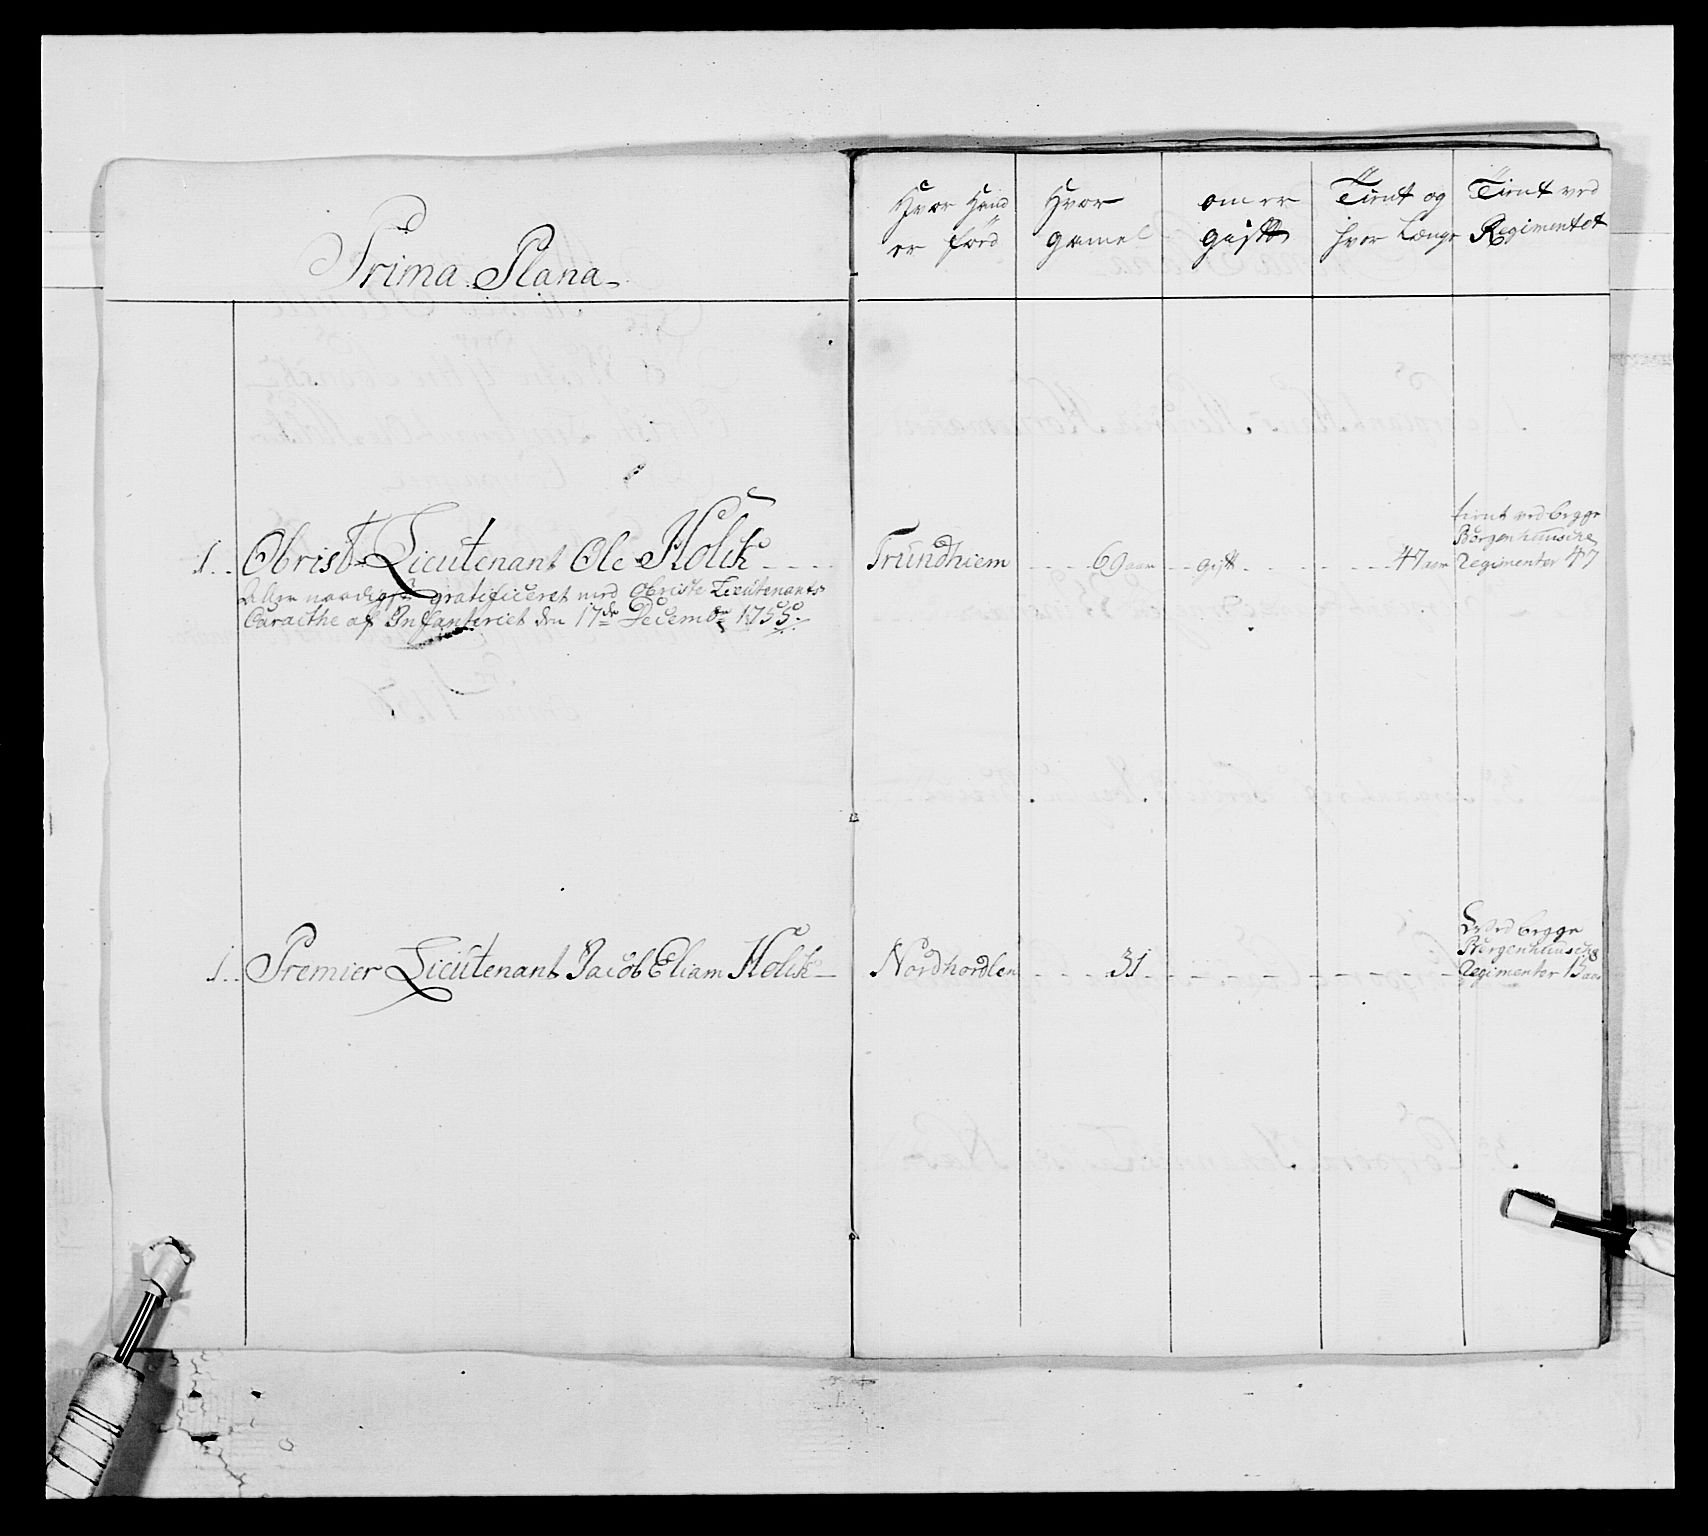 Prima Plana
Hvor Hand
er föed
Hvor
gamel
om er
gift
Tient og
hvor Længe
Tient ved
Regimentet
1. Obrist Lieutenant Ole Holck
Aller naadigst gratificeret med Obriste Lieutenants
Caracthe af Infanteriet den 17de Decembr 1755.
Trundhiem
69 aar
gift
47 aar
tient ved begge
Bergenhuusche
Regimenter 47
1. Premier Lieutenant Jacob Eliam Holck
Nordhordlen
31
ved begge
Bergenhuusche
Regimenter 15 aar